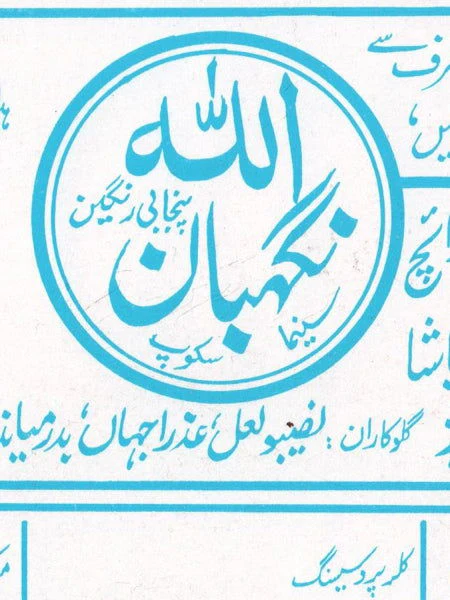 رف سے
یں،
اللہ
نگہبان
پنجابی رنگین
سینما سکوپ
ائچ
اشا
گلوکاران : نصیبو لعل، عذرا جہاں، بدر میاند
کلر پروسیسنگ